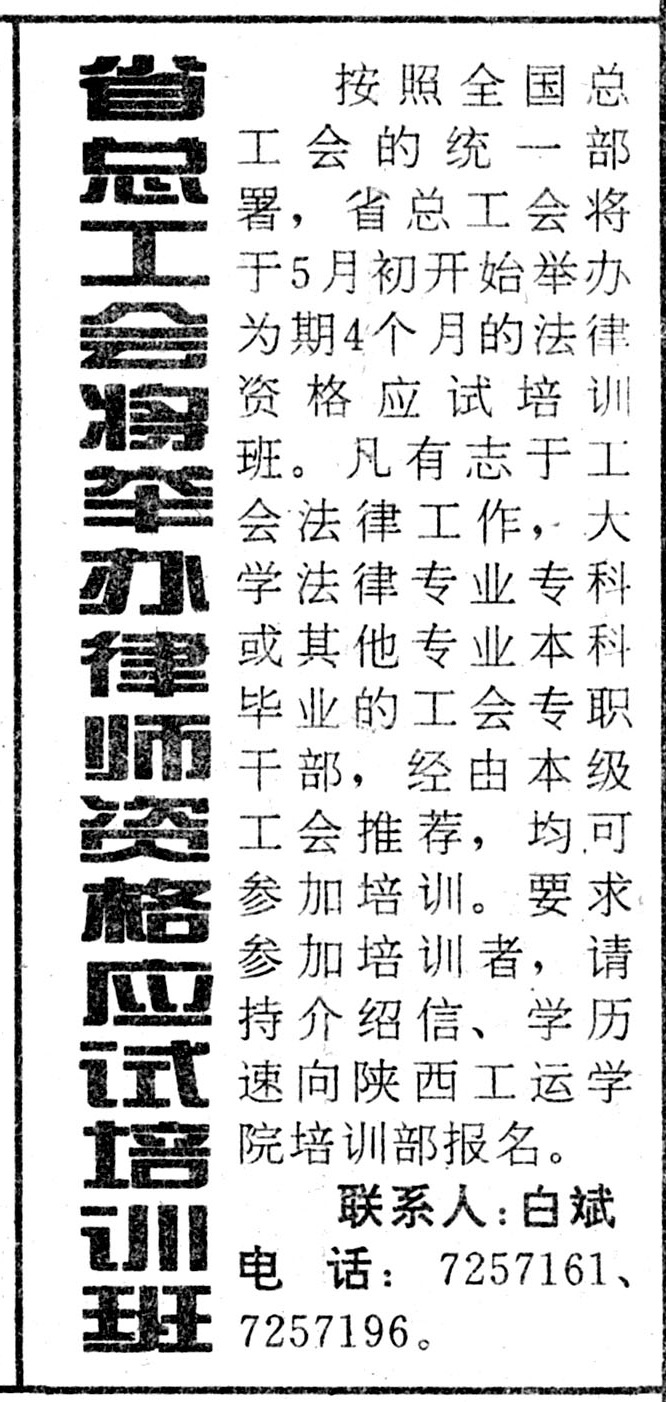 省总工会将举办律师资格应试培训班
按照全国总
工会的统一部
署，省总工会将
于5月初开始举办
为期4个月的法律
资格应试培训
班。凡有志于工
会法律工作，大
学法律专业专科
或其他专业本科
毕业的工会专职
干部，经由本级
工会推荐，均可
参加培训。要求
参加培训者，请
持介绍信、学历
速向陕西工运学
院培训部报名。
联系人：白斌
电 话：7257161、
7257196。